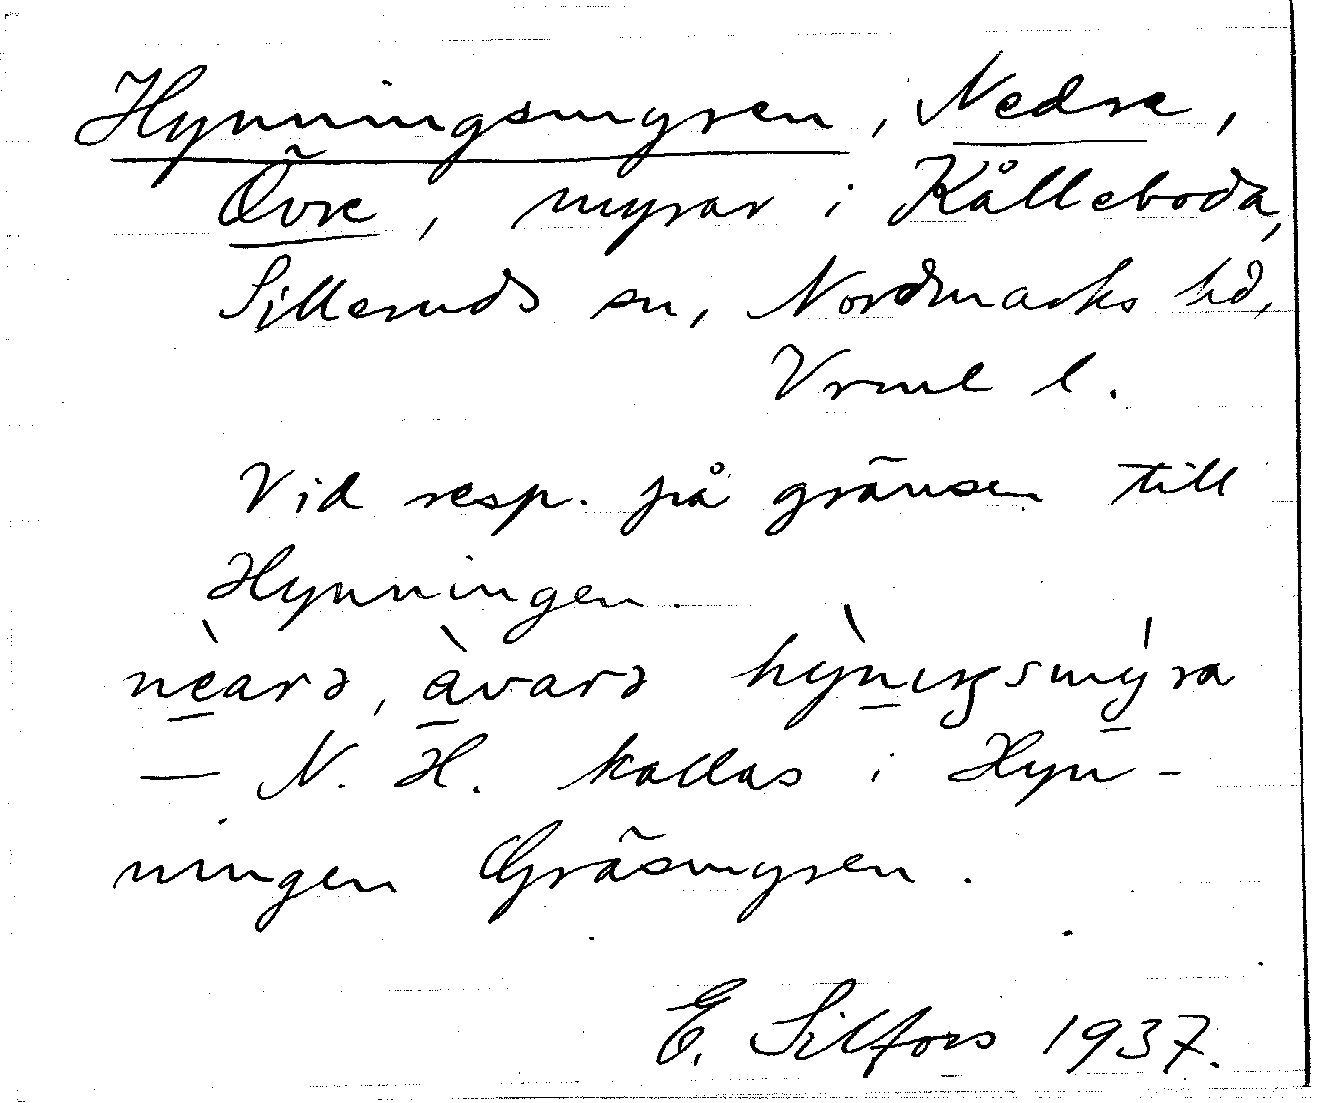 Hynningsmyren, Nedre,
Övre, myrar i Kålleboda,
Silleruds sn, Nordmarks hd,
Vrml l.
Vid resp. på gränsen till
Hynningen.
nèarə, àvarə hỳnıŋsmýra
— N. H. kallas i Hyn-
ningen Gräsmyren.
E. Silfors 1937.